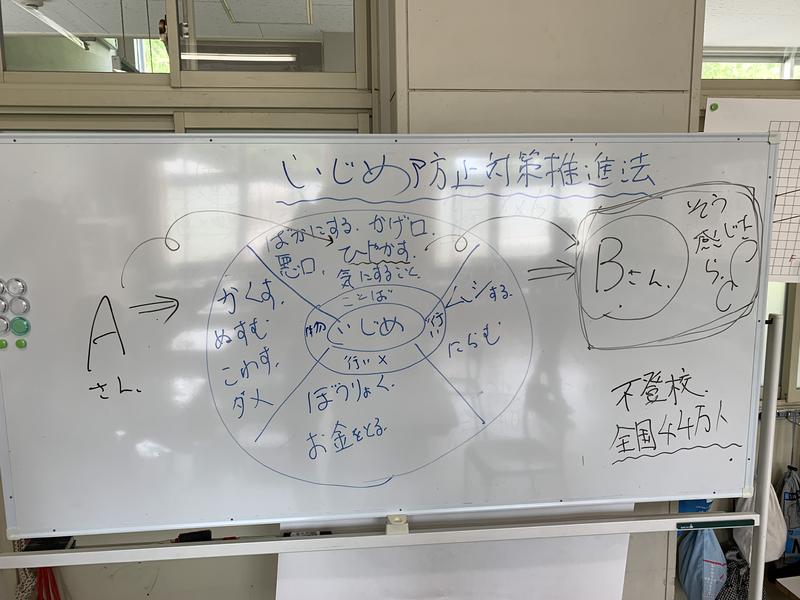 いじめ防止対策推進法
ばかにする. かげ口.
悪口. ひやかす.
気にすること
ことば
かくす.
ぬすむ
こわす.
ダメ
物
いじめ
行い
ムシする.
にらむ
行い×
ぼうりょく.
お金をとる.
A
さん.
Bさん.
そう
感じた
ら.
不登校.
全国44万人